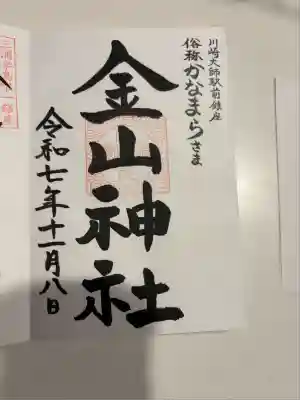 川崎大師駅前鎮座
俗称かなまらさま
金山神社
令和七年十一月八日